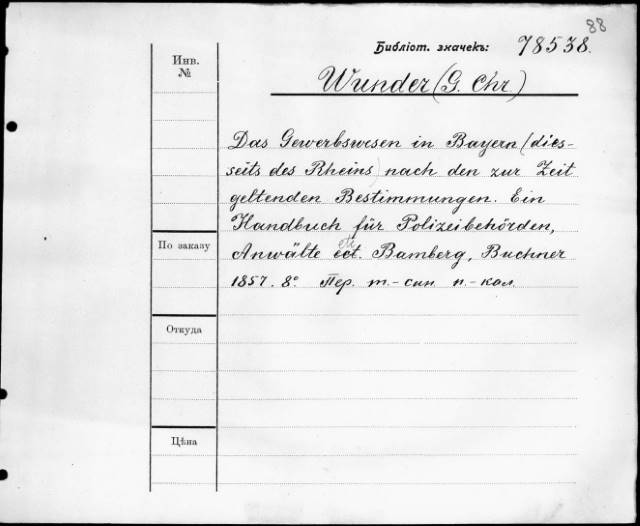 88
Библіот. значекъ: 78538.
Инв.
№
Wunder (G. Chr.)
Das Gewerbswesen in Bayern (dies-
seits des Rheins) nach den zur Zeit
geltenden Bestimmungen. Ein
Handbuch für Polizeibehörden,
По заказу
Anwälte etc. Bamberg, Buchner
1857. 8º. Пер. т.-син. п.-кол.
Откуда
Цѣна